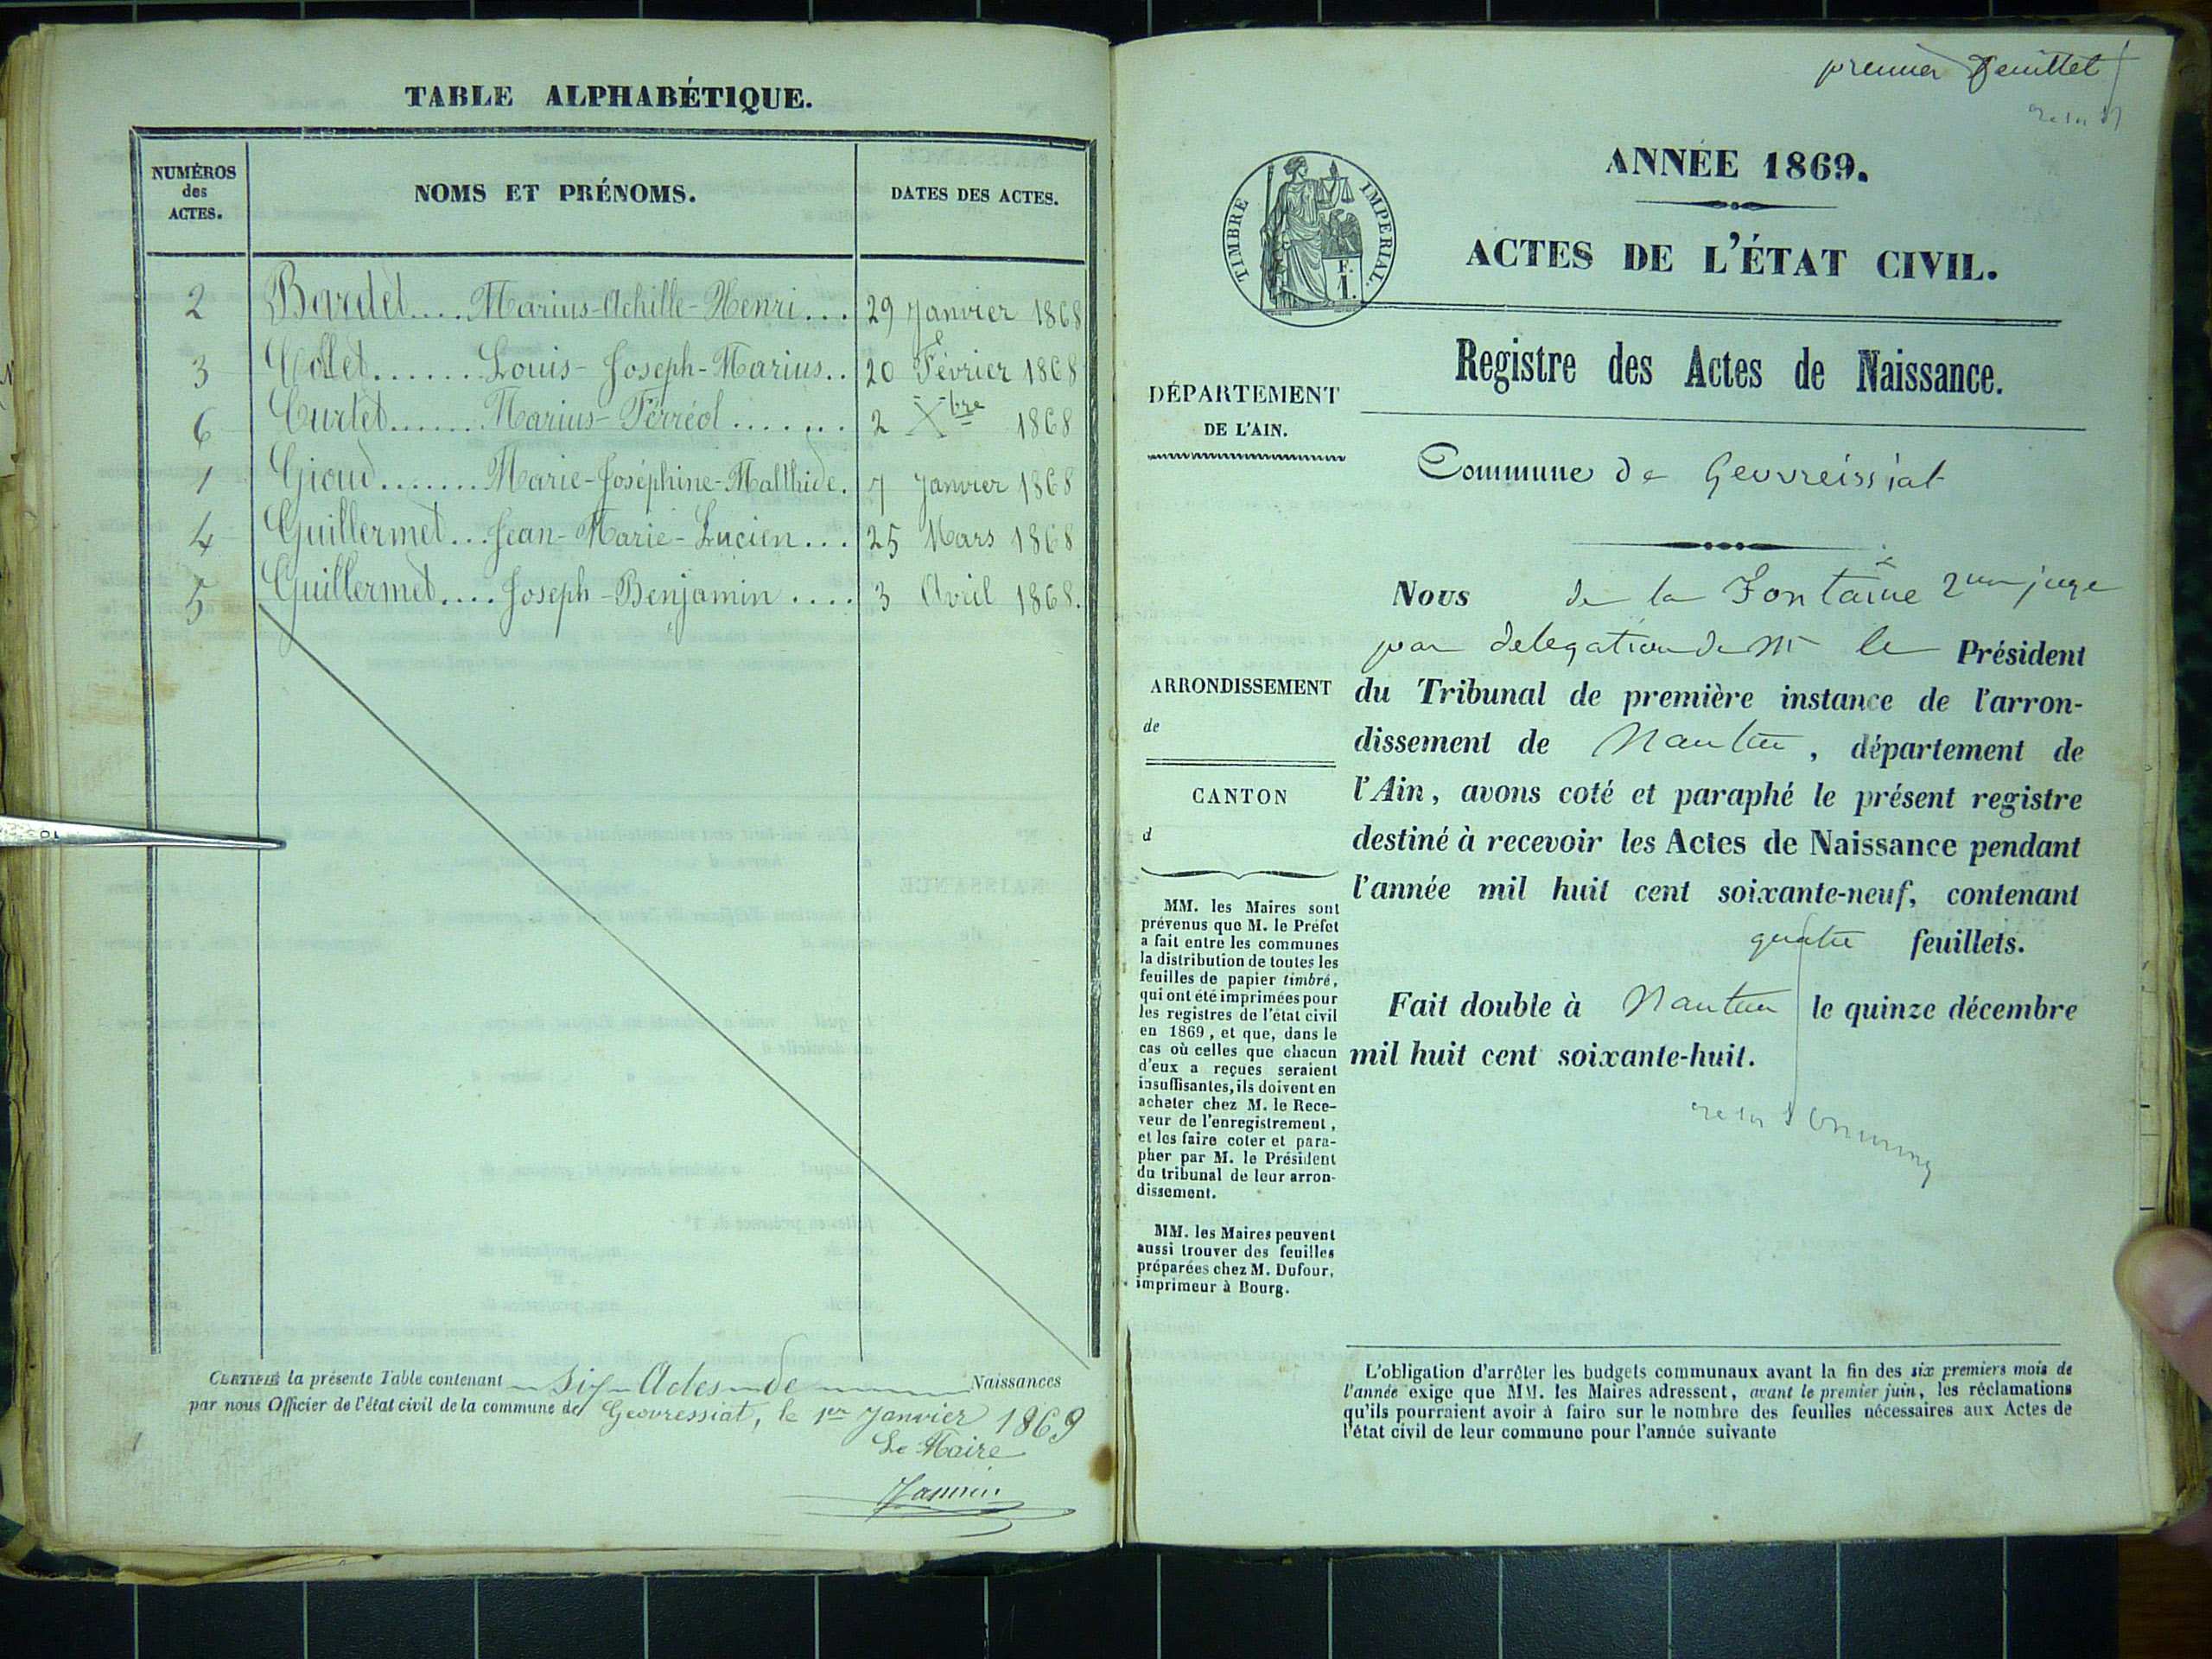 TABLE ALPHABÉTIQUE.
NUMÉROS des ACTES. NOMS ET PRÉNOMS. DATES DES ACTES.
2 Bardet.... Marius-Achille-Henri... 29 Janvier 1868
3 Collet....... Louis-Joseph-Marius.. 20 Février 1868
6 Curtet...... Marius-Ferréol....... 2 Xbre 1868
1 Gioud....... Marie-Joséphine-Malthide. 7 Janvier 1868
4 Guillermet... Jean-Marie-Lucien... 25 Mars 1868
5 Guillermet.... Joseph-Benjamin.... 3 Avril 1868.
CERTIFIÉ la présente Table contenant six Actes de Naissances
par nous Officier de l'état civil de la commune de Geovressiat, le 1er Janvier 1869
Le Maire
premier feuillet
ANNÉE 1869.
TIMBRE IMPERIAL.
F. 1.
ACTES DE L'ÉTAT CIVIL.
Registre des Actes de Naissance.
DÉPARTEMENT
DE L'AIN.
Commune de Geovreissiat
Nous de la Fontaine juge
par delegation de Mr le Président
du Tribunal de première instance de l'arron-
dissement de Nantua, département de
l'Ain, avons coté et paraphé le présent registre
destiné à recevoir les Actes de Naissance pendant
l'année mil huit cent soixante-neuf, contenant
quatre feuillets.
Fait double à Nantua le quinze décembre
mil huit cent soixante-huit.
ARRONDISSEMENT
de
CANTON
d
MM. les Maires sont
prévenus que M. le Préfet
a fait entre les communes
la distribution de toutes les
feuilles de papier timbré,
qui ont été imprimées pour
les registres de l'état civil
en 1869, et que, dans le
cas où celles que chacun
d'eux a reçues seraient
insuffisantes, ils doivent en
acheter chez M. le Rece-
veur de l'enregistrement,
et les faire coter et para-
pher par M. le Président
du tribunal de leur arron-
dissement.
MM. les Maires peuvent
aussi trouver des feuilles
préparées chez M. Dufour,
imprimeur à Bourg.
L'obligation d'arrêter les budgets communaux avant la fin des six premiers mois de
l'année exige que MM. les Maires adressent, avant le premier juin, les réclamations
qu'ils pourraient avoir à faire sur le nombre des feuilles nécessaires aux Actes de
l'état civil de leur commune pour l'année suivante